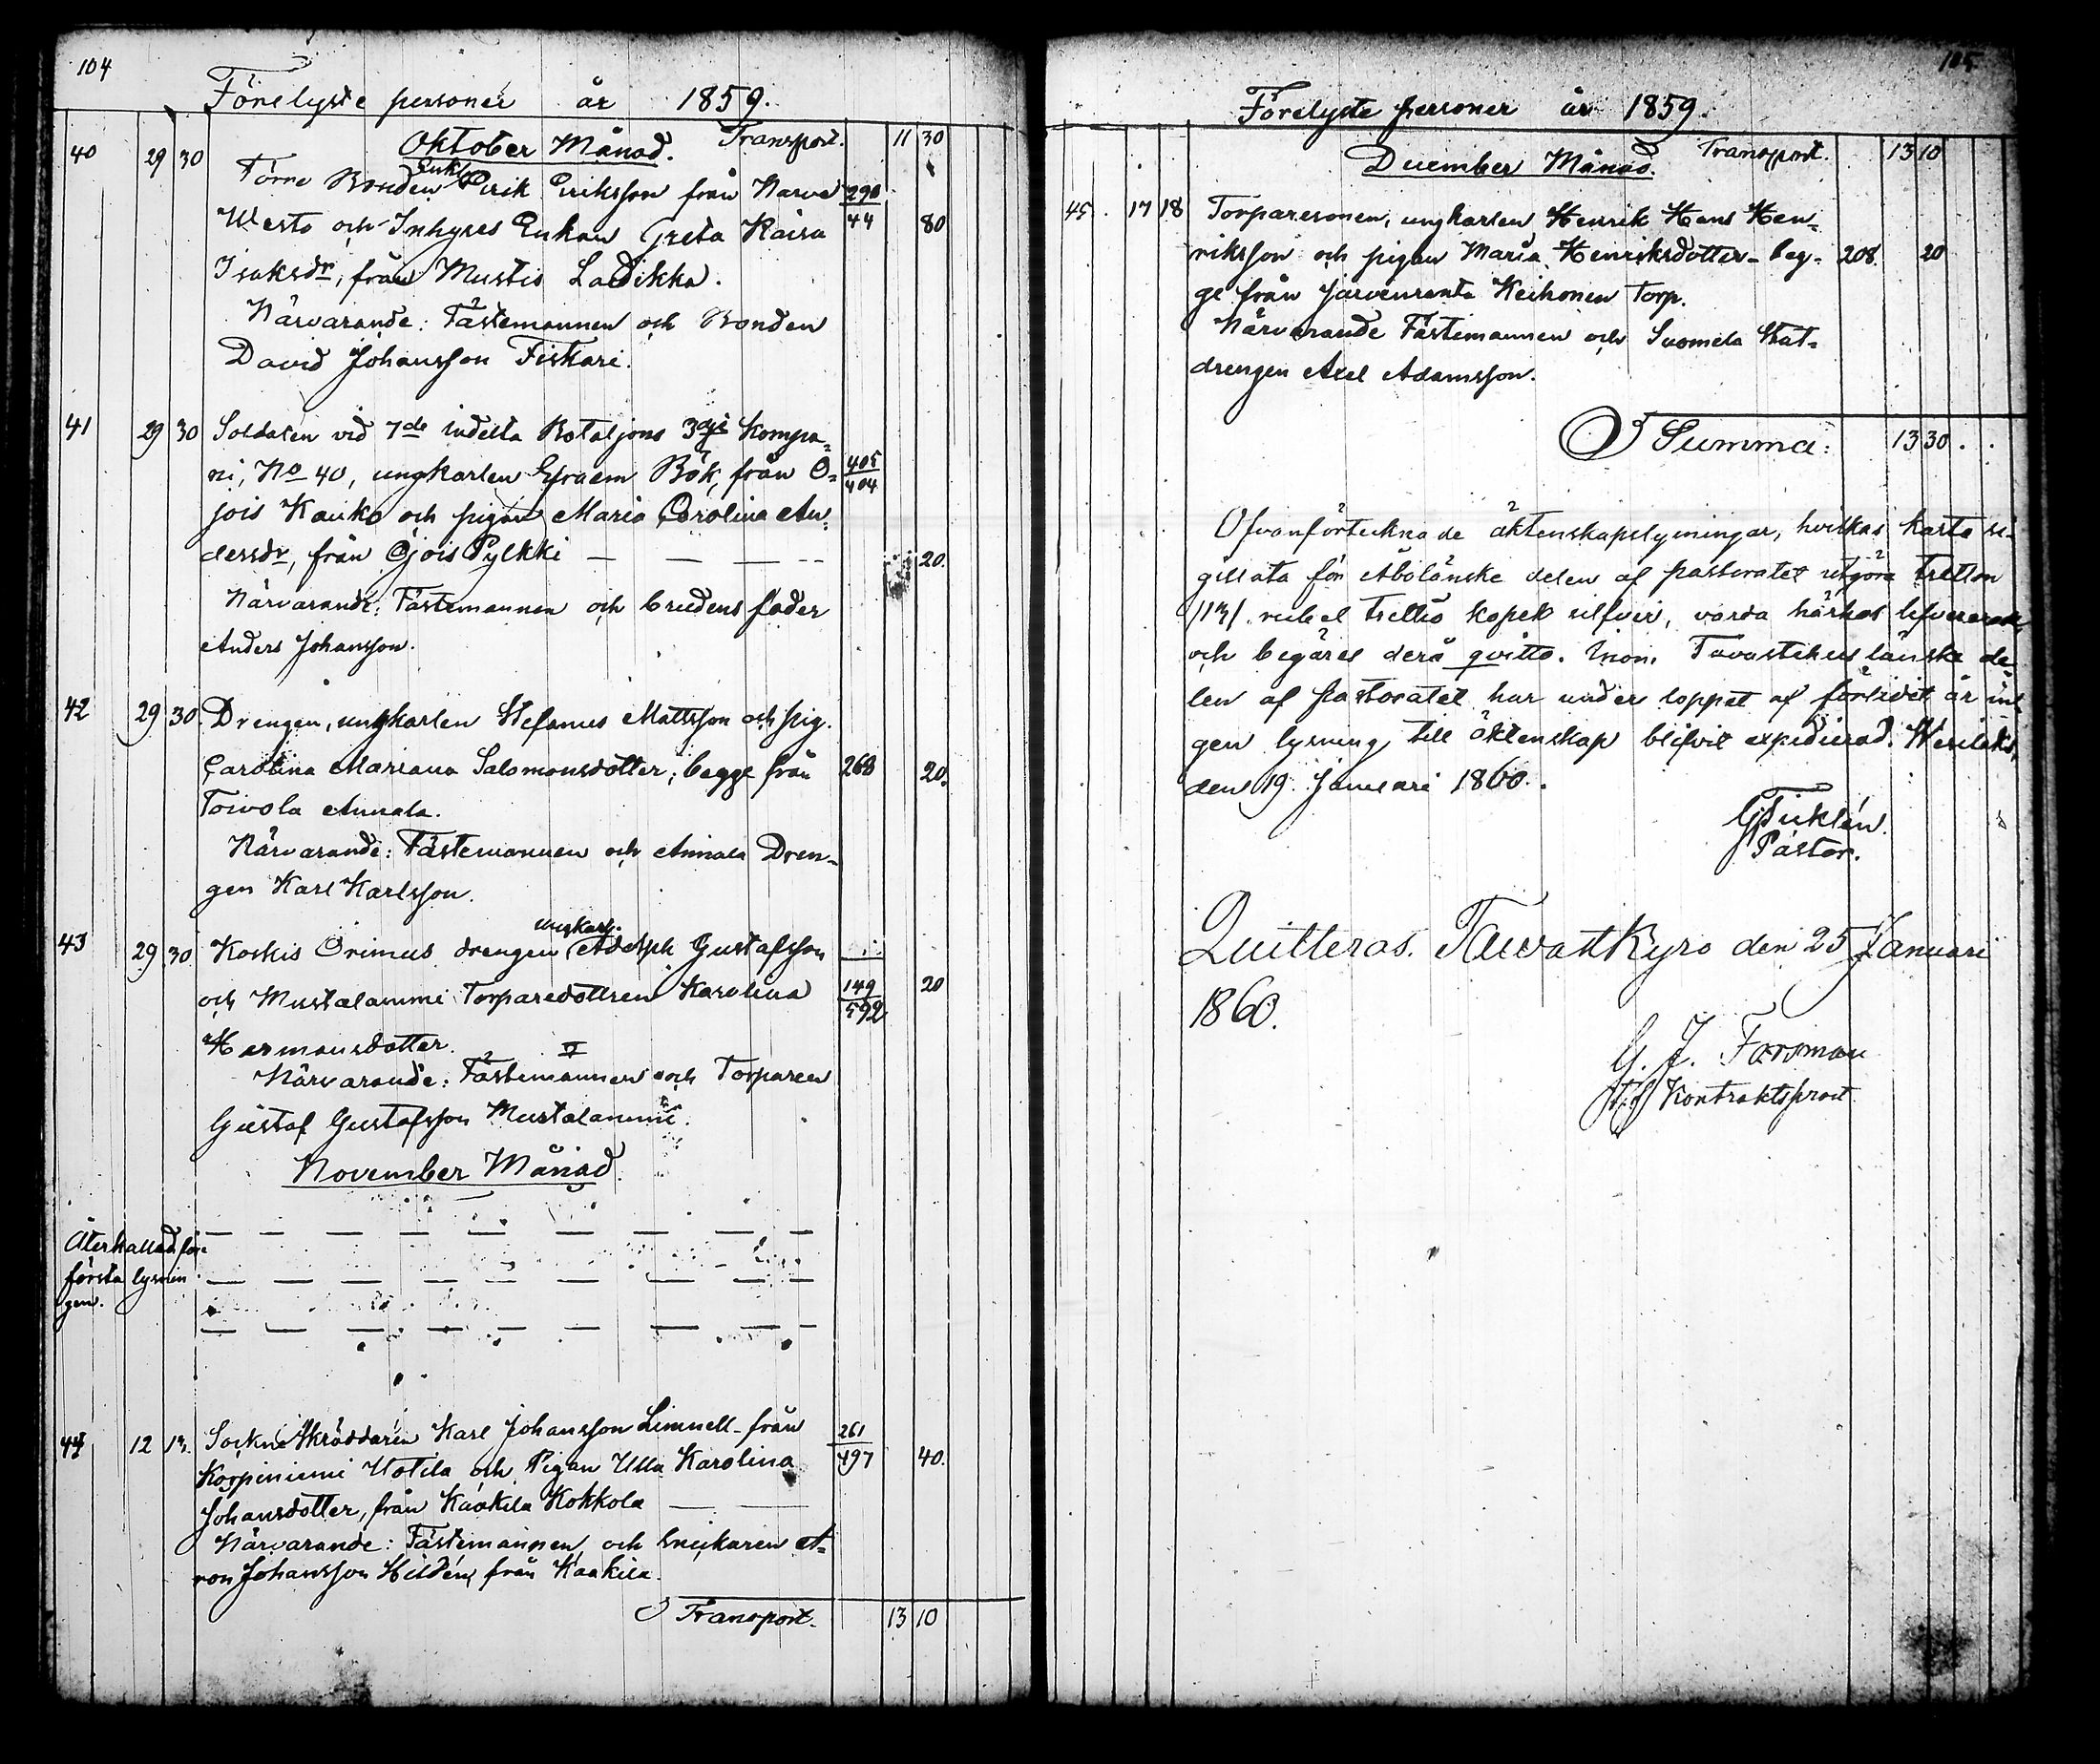 104
Förelyste personer år 1859.
Oktober Månad. Transport. 11 30
40 29 30 Förre Bonden Enkl. Erik Eriksson från Narva 290
Westo och Inhyses Enkan Greta Kaisa 44 80
Isaksdr, från Mustis Ladikka.
Närvarande: Fästemannen och Bonden
David Johansson Fiskari.
41 29 30 Soldaten vid 7de indelta Bataljons 3dje Kompa-
ni, No 40, ungkarlen Efraem Bök, från O- 405
jois Kauko och pigan Maria Carolina An- 404
dersdr, från Ojois Pylkki — — — -- 20.
Närvarande: Fästemannen och brudens fader
Anders Johansson.
42 29 30. Drengen, ungkarlen Stefanus Mattsson och pig.
Carolina Mariana Salomonsdotter, begge från 268 20.
Toivola Annala.
Närvarande: Fästemannen och Annala Dren-
gen Karl Karlsson.
43 29 30 Koskis Orimus drengen ungkarl. Adolph Gustafsson
och Mustalammi Torparedottren Karolina 149 20
Hermansdotter. 592
Närvarande: Fästemannen och Torparen
Gustaf Gustafsson Mustalammi.
November Månad.
Återkallad före
första lysnin-
gen.
44 12 13. Sockne Skräddaren Karl Johansson Limnell från 261
Korpiniemi Uotila och Pigan Ulla Karolina 497 40.
Johansdotter, från Kaakila Kokkola — —
Närvarande: Fästemannen och Snickaren A-
ron Johansson Hildén, från Kaakila.
Transport. 13 10
105
Förelyste personer år 1859.
December Månad. Transport. 13 10
45. 17 18 Torparesonen, ungkarlen Henrik Hans Hen-
riksson och pigan Maria Henriksdotter beg- 208. 20
ge från Järvenranta Keihonen Torp.
Närvarande Fästemannen och Suomela Stat-
drengen Axel Adamsson.
Summa: 13 30.
Ofvanförtecknade äktenskapslysningar, hvilkas karta si-
gillata för Åbolänske delen af pastoratet utgöra tretton
/13/. rubel trettio kopek silfver, varda härhos lefvererade
och begäres derå qvitto. Inom Tavastehus länske de-
len af pastoratet har under loppet af förlidit år in-
gen lysning till äktenskap blifvit expedierad. Wesilaks,
den 19 Januari 1860.
Pastor.
Quitteras. TavastKyro den 25 Januari
1860.
G. J. Forsman
Kontraktsprost